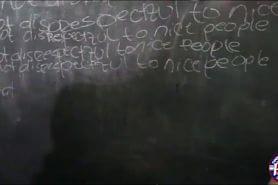 ot disrespectful to nice
ot disrespectful to nice people
ot disrespectful to nice people
not disrespectful to nice people
not